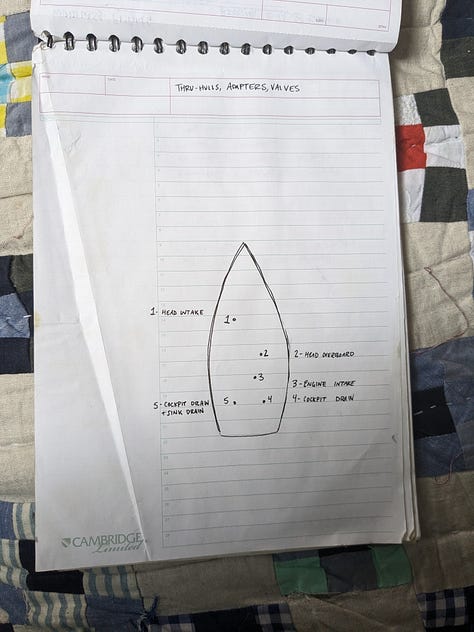 DATE
THRU-HULLS, ADAPTERS, VALVES
1- HEAD INTAKE
1
2
2- HEAD OVERBOARD
3
3- ENGINE INTAKE
5- COCKPIT DRAIN
+ SINK DRAIN
5
4
4- COCKPIT DRAIN
CAMBRIDGE
Limited